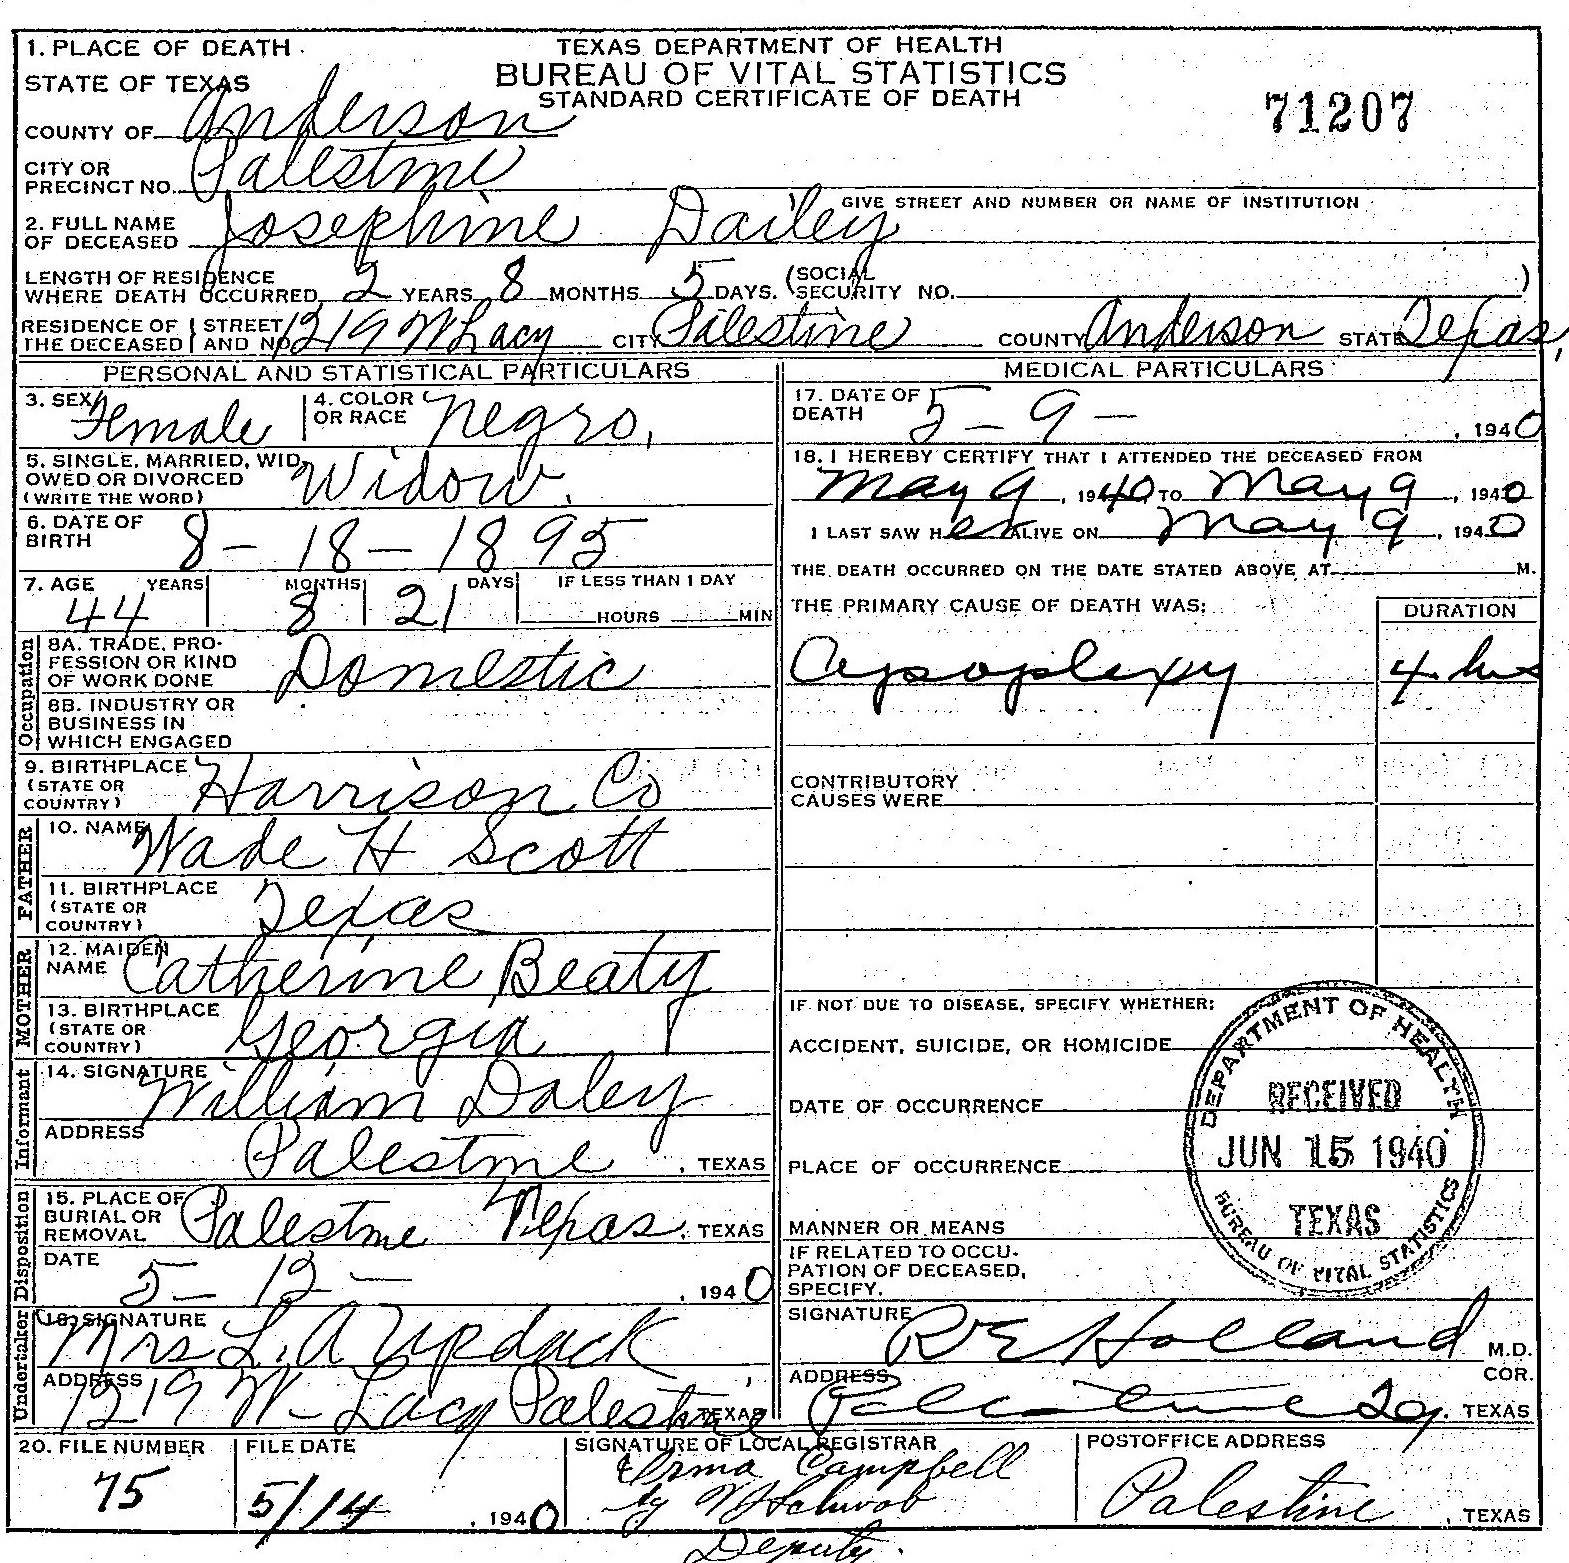 1. PLACE OF DEATH
TEXAS DEPARTMENT OF HEALTH
BUREAU OF VITAL STATISTICS
STANDARD CERTIFICATE OF DEATH
71207
STATE OF TEXAS
COUNTY OF Anderson
CITY OR PRECINCT NO. Palestine
GIVE STREET AND NUMBER OR NAME OF INSTITUTION
2. FULL NAME OF DECEASED Josephine Dailey
LENGTH OF RESIDENCE WHERE DEATH OCCURRED 2 YEARS 8 MONTHS 5 DAYS. (SOCIAL SECURITY NO. )
RESIDENCE OF THE DECEASED STREET AND NO. 1219 W Lacy CITY Palestine COUNTY Anderson STATE Texas,
PERSONAL AND STATISTICAL PARTICULARS
3. SEX Female 4. COLOR OR RACE Negro,
5. SINGLE, MARRIED, WIDOWED OR DIVORCED (WRITE THE WORD) Widow.
6. DATE OF BIRTH 8-18-1895
7. AGE 44 YEARS 8 MONTHS 21 DAYS IF LESS THAN 1 DAY HOURS MIN
Occupation
8A. TRADE, PROFESSION OR KIND OF WORK DONE Domestic
8B. INDUSTRY OR BUSINESS IN WHICH ENGAGED
9. BIRTHPLACE (STATE OR COUNTRY) Harrison Co
FATHER
10. NAME Wade H Scott
11. BIRTHPLACE (STATE OR COUNTRY) Texas
MOTHER
12. MAIDEN NAME Catherine Beaty
13. BIRTHPLACE (STATE OR COUNTRY) Georgia
Informant
14. SIGNATURE William Daley
ADDRESS Palestine, TEXAS
Disposition
15. PLACE OF BURIAL OR REMOVAL Palestine Texas. TEXAS
DATE 5-12-, 1940
Undertaker
16. SIGNATURE Mrs L. A Updack
ADDRESS 1219 W- Lacy Palestine TEXAS
MEDICAL PARTICULARS
17. DATE OF DEATH 5-9-, 1940
18. I HEREBY CERTIFY THAT I ATTENDED THE DECEASED FROM
May 9, 1940 TO May 9, 1940
I LAST SAW HER ALIVE ON May 9, 1940
THE DEATH OCCURRED ON THE DATE STATED ABOVE AT M.
THE PRIMARY CAUSE OF DEATH WAS: DURATION
Apoplexy 4 hrs
CONTRIBUTORY CAUSES WERE
IF NOT DUE TO DISEASE, SPECIFY WHETHER:
ACCIDENT, SUICIDE, OR HOMICIDE
DATE OF OCCURRENCE
PLACE OF OCCURRENCE
MANNER OR MEANS
IF RELATED TO OCCUPATION OF DECEASED, SPECIFY.
DEPARTMENT OF HEALTH
RECEIVED
JUN 15 1940
TEXAS
BUREAU OF VITAL STATISTICS
SIGNATURE R E Holland M.D. COR.
ADDRESS Palestine TEXAS
20. FILE NUMBER 75
FILE DATE 5/14, 1940
SIGNATURE OF LOCAL REGISTRAR
Irma Campbell
by Schwob
Deputy.
POSTOFFICE ADDRESS
Palestine, TEXAS